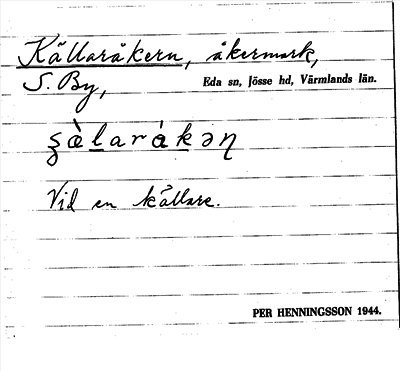 Källaråkern, åkermark,
S. By,
Eda sn, Jösse hd, Värmlands län.
Vid en källare.
PER HENNINGSSON 1944.